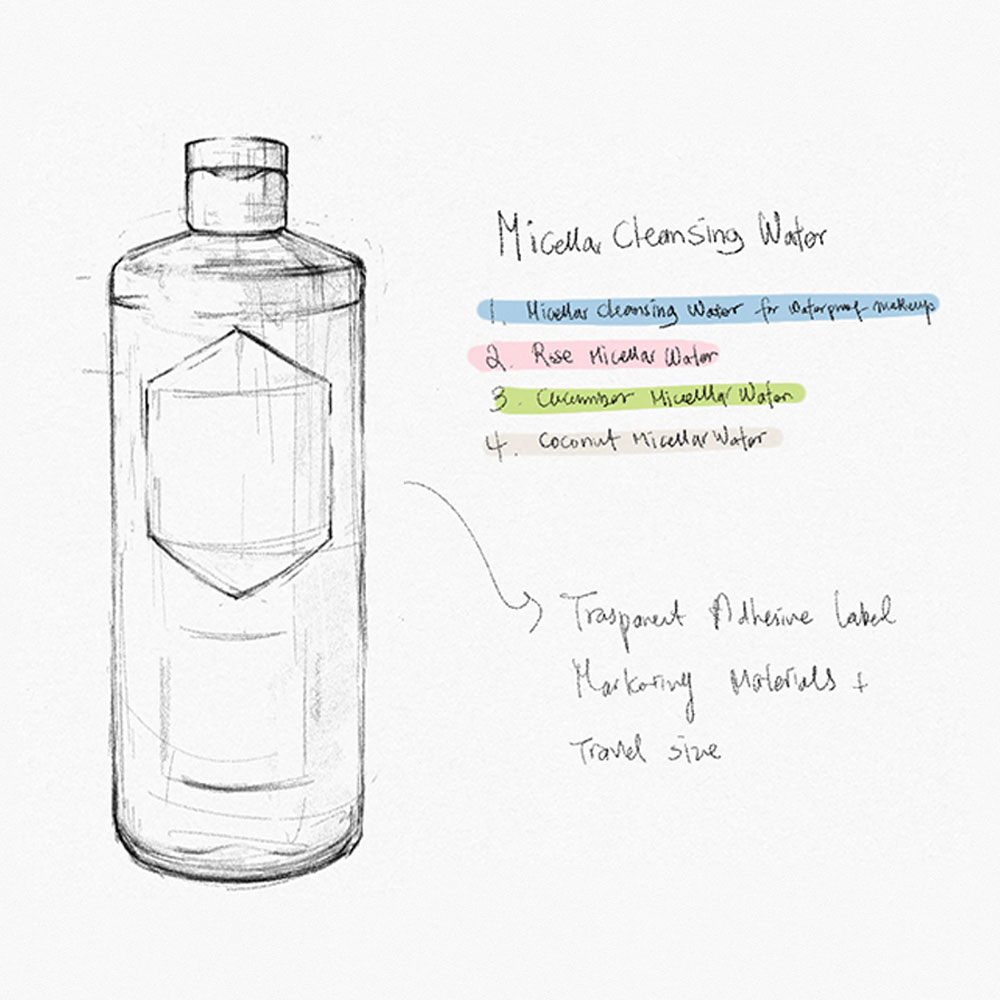 Micellar Cleansing Water
1. Micellar Cleansing Water for waterproof makeup
2. Rose Micellar Water
3. Cucumber Micelllar Water
4. Coconut Micellar Water
Trasparent Adhesive Label
Markering Materials +
Travel size